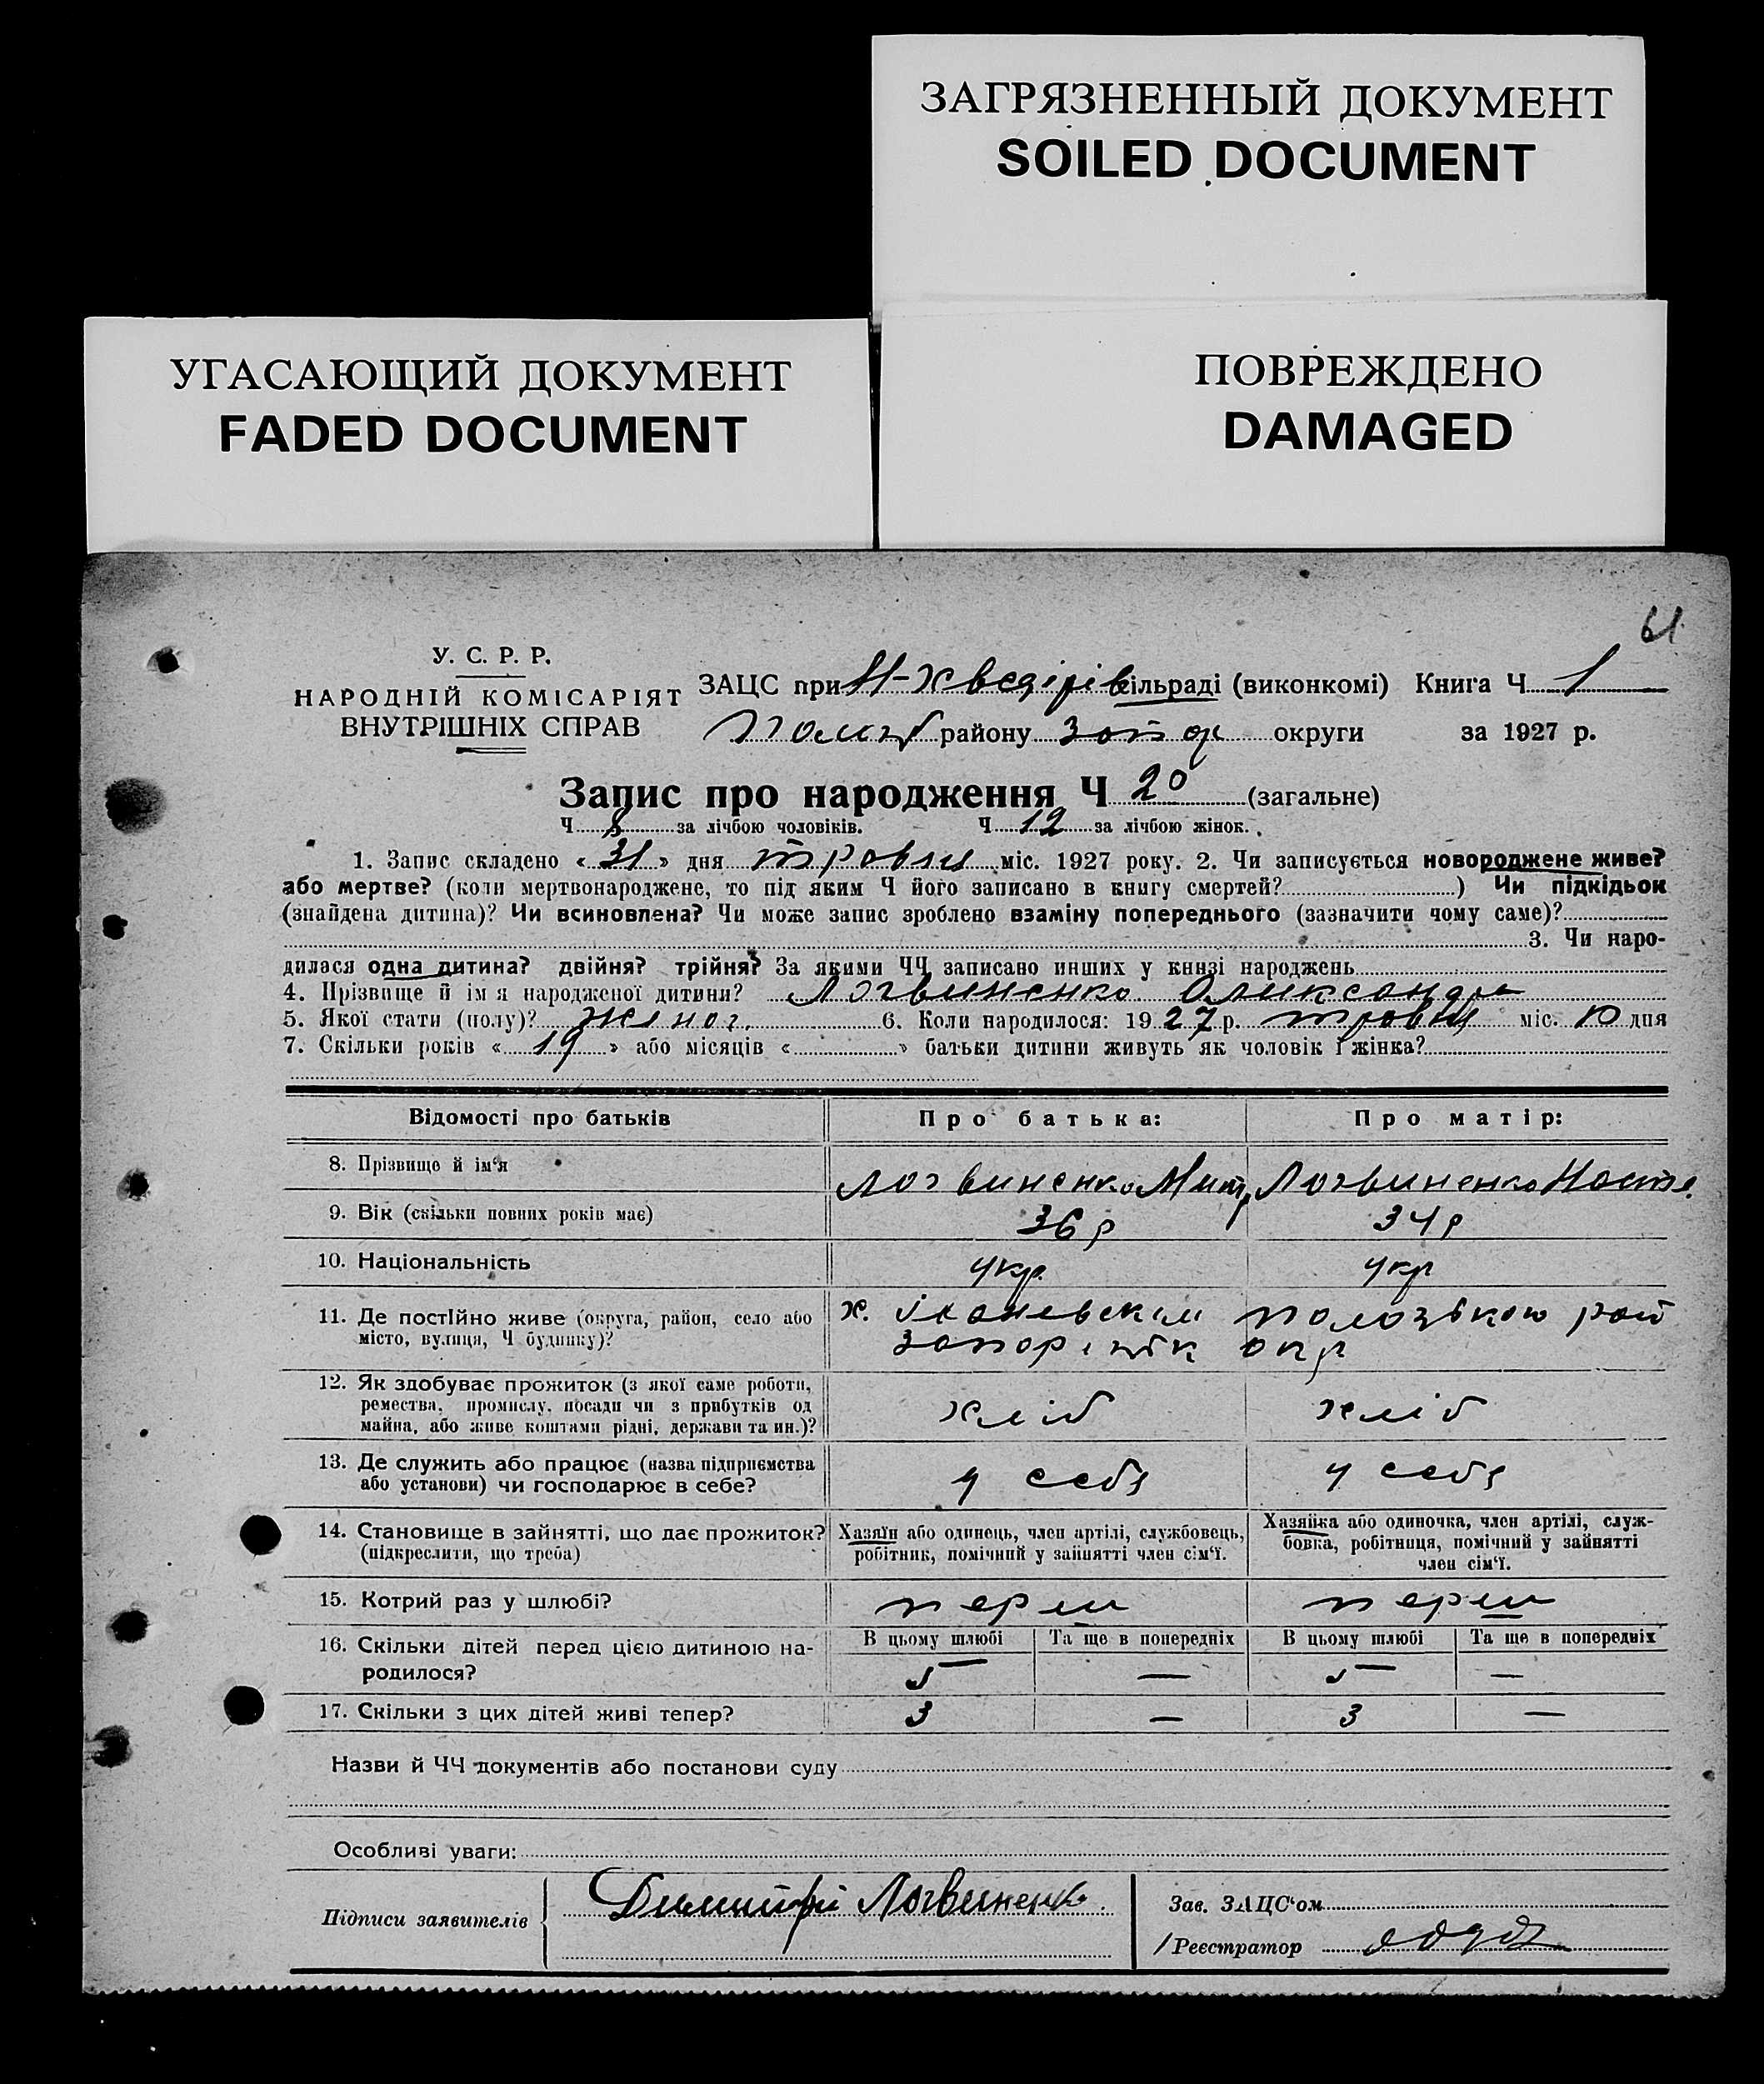 ЗАГРЯЗНЕННЫЙ ДОКУМЕНТ
SOILED DOCUMENT
УГАСАЮЩИЙ ДОКУМЕНТ
FADED DOCUMENT
ПОВРЕЖДЕНО
DAMAGED
61
У. С. Р. Р.
НАРОДНІЙ КОМІСАРІЯТ
ВНУТРІШНІХ СПРАВ
ЗАЦС при Н-Хведірів сільраді (виконкомі) Книга Ч 1
району Запор округи за 1927 р.
Запис про народження Ч 20 (загальне)
Ч 8 за лічбою чоловіків. Ч 12 за лічбою жінок.
1. Запис складено « 31 » дня травня міс. 1927 року. 2. Чи записується новороджене живе?
або мертве? (коли мертвонароджене, то під яким Ч його записано в книгу смертей? ) Чи підкідьок
(знайдена дитина)? Чи всиновлена? Чи може запис зроблено взаміну попереднього (зазначити чому саме)?
3. Чи наро-
дилася одна дитина? двійня? трійня? За якими ЧЧ записано инших у книзі народжень
4. Прізвище й ім я народженої дитини? Логвиненко Олександра
5. Якої стати (полу)? жіноч. 6. Коли народилося: 1927 р. травня міс. 10 дня
7. Скільки років « 19 » або місяців « » батьки дитини живуть як чоловік і жінка?
Відомості про батьків Про батька: Про матір:
8. Прізвище й ім‘я Логвиненко Митр Логвиненко Настя
9. Вік (скільки повних років має) 36 р 34 р
10. Національність укр. укр
11. Де постійно живе (округа, район, село або х. Полозького рай
місто, вулиця, Ч будинку)? Запоріжк окр
12. Як здобуває прожиток (з якої саме роботи,
ремества, промислу, посади чи з прибутків од хліб хліб
майна, або живе коштами рідні, держави та ин.)?
13. Де служить або працює (назва підприємства
або установи) чи господарює в себе? у себе у себе
14. Становище в зайнятті, що дає прожиток?
(підкреслити, що треба)
Хазяїн або одинець, член артілі, службовець,
робітник, помічний у зайнятті член сім‘ї.
Хазяйка або одиночка, член артілі, служ-
бовка, робітниця, помічний у зайнятті
член сім‘ї.
15. Котрий раз у шлюбі? перш перш
16. Скільки дітей перед цією дитиною на-
родилося?
В цьому шлюбі Та ще в попередніх В цьому шлюбі Та ще в попередніх
5 — 5 —
17. Скільки з цих дітей живі тепер? 3 — 3 —
Назви й ЧЧ документів або постанови суду
Особливі уваги:
Підписи заявителів Димитрій Логвиненко.
Зав. ЗАЦС‘ом
Реєстратор